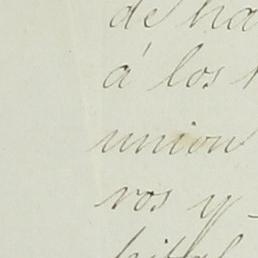 de ha
á los
union
ros y